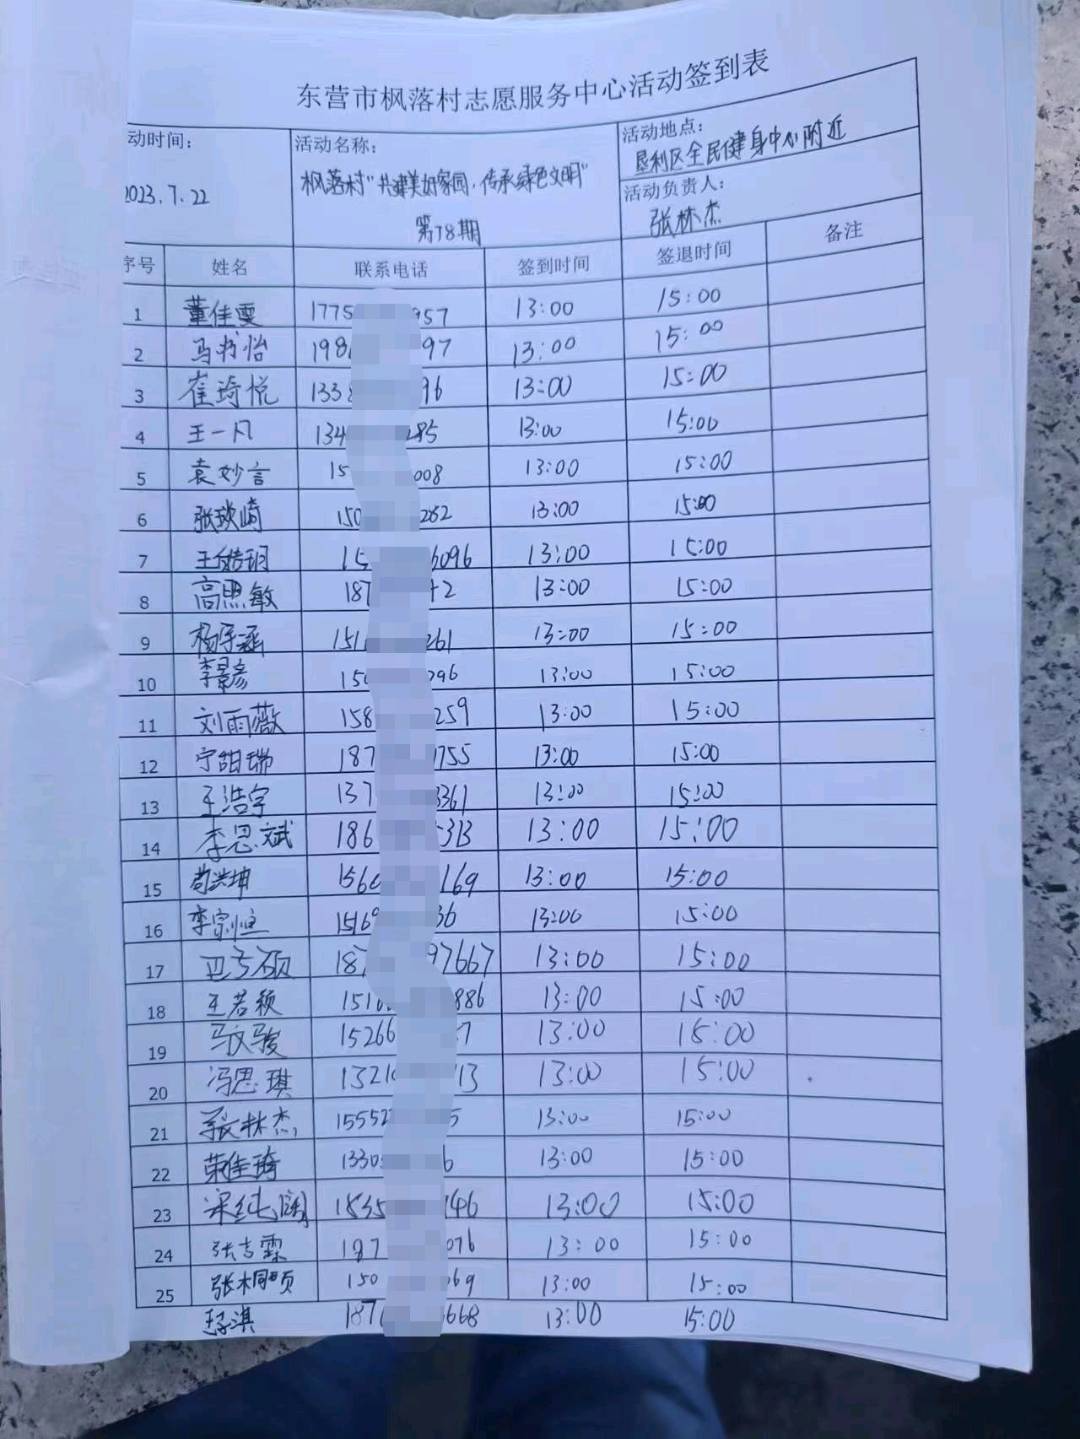 东营市枫落村志愿服务中心活动签到表
动时间: 活动名称: 活动地点:
2023.7.22 枫落村"共建美好家园,传承绿色文明" 垦利区全民健身中心附近
第78期 活动负责人:
张林杰
序号 姓名 联系电话 签到时间 签退时间 备注
1 董佳雯 1775 957 13:00 15:00
2 马书怡 198 97 13:00 15:00
3 崔琦悦 1338 96 13:00 15:00
4 王一凡 134 285 13:00 15:00
5 袁妙言 15 008 13:00 15:00
6 张琰崎 150 262 13:00 15:00
7 15 6096 13:00 15:00
8 高思敏 187 2 13:00 15:00
9 杨宇涵 151 261 13:00 15:00
10 李景彦 150 096 13:00 15:00
11 刘雨薇 158 259 13:00 15:00
12 宁甜瑞 187 755 13:00 15:00
13 王浩宇 137 3361 13:00 15:00
14 李思斌 186 313 13:00 15:00
15 苟洪坤 156 169 13:00 15:00
16 李宗恒 15169 36 13:00 15:00
17 187 97667 13:00 15:00
18 王若颖 151 886 13:00 15:00
19 马骏 15266 7 13:00 15:00
20 冯思琪 1321 13 13:00 15:00
21 张林杰 15552 5 13:00 15:00
22 荣佳琦 1330 6 13:00 15:00
23 1835 146 13:00 15:00
24 张吉霖 187 076 13:00 15:00
25 张桐硕 150 069 13:00 15:00
187 6668 13:00 15:00